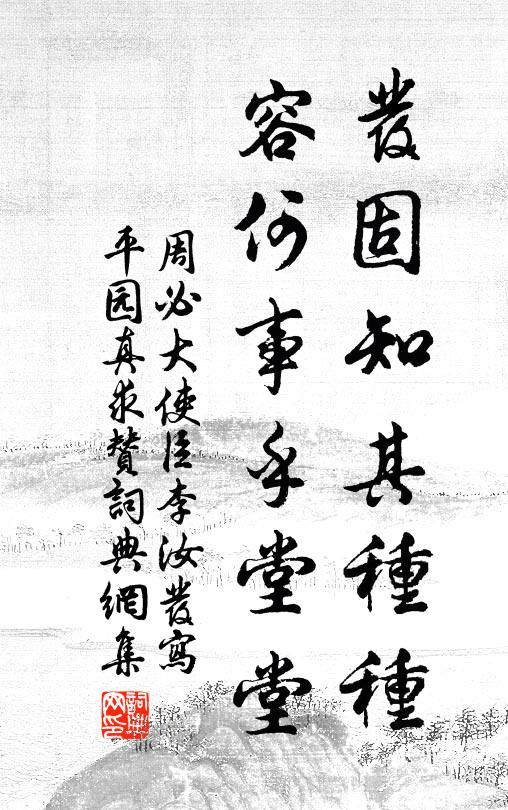 發固知其種種
容何事乎堂堂
周必大使臣李汝發寫
平园真求贊詞典網集